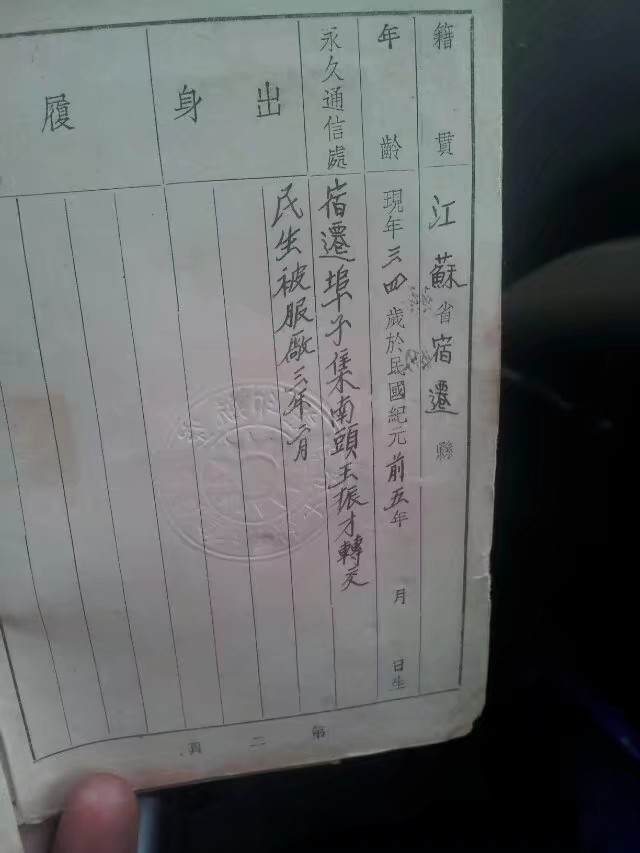 籍貫 江蘇省宿遷縣
年齡 現年三四歲於民國紀元前五年 月 日生
永久通信處 宿遷埠子集南頭王振才轉交
出身 民生被服廠三年二月
履
第二頁